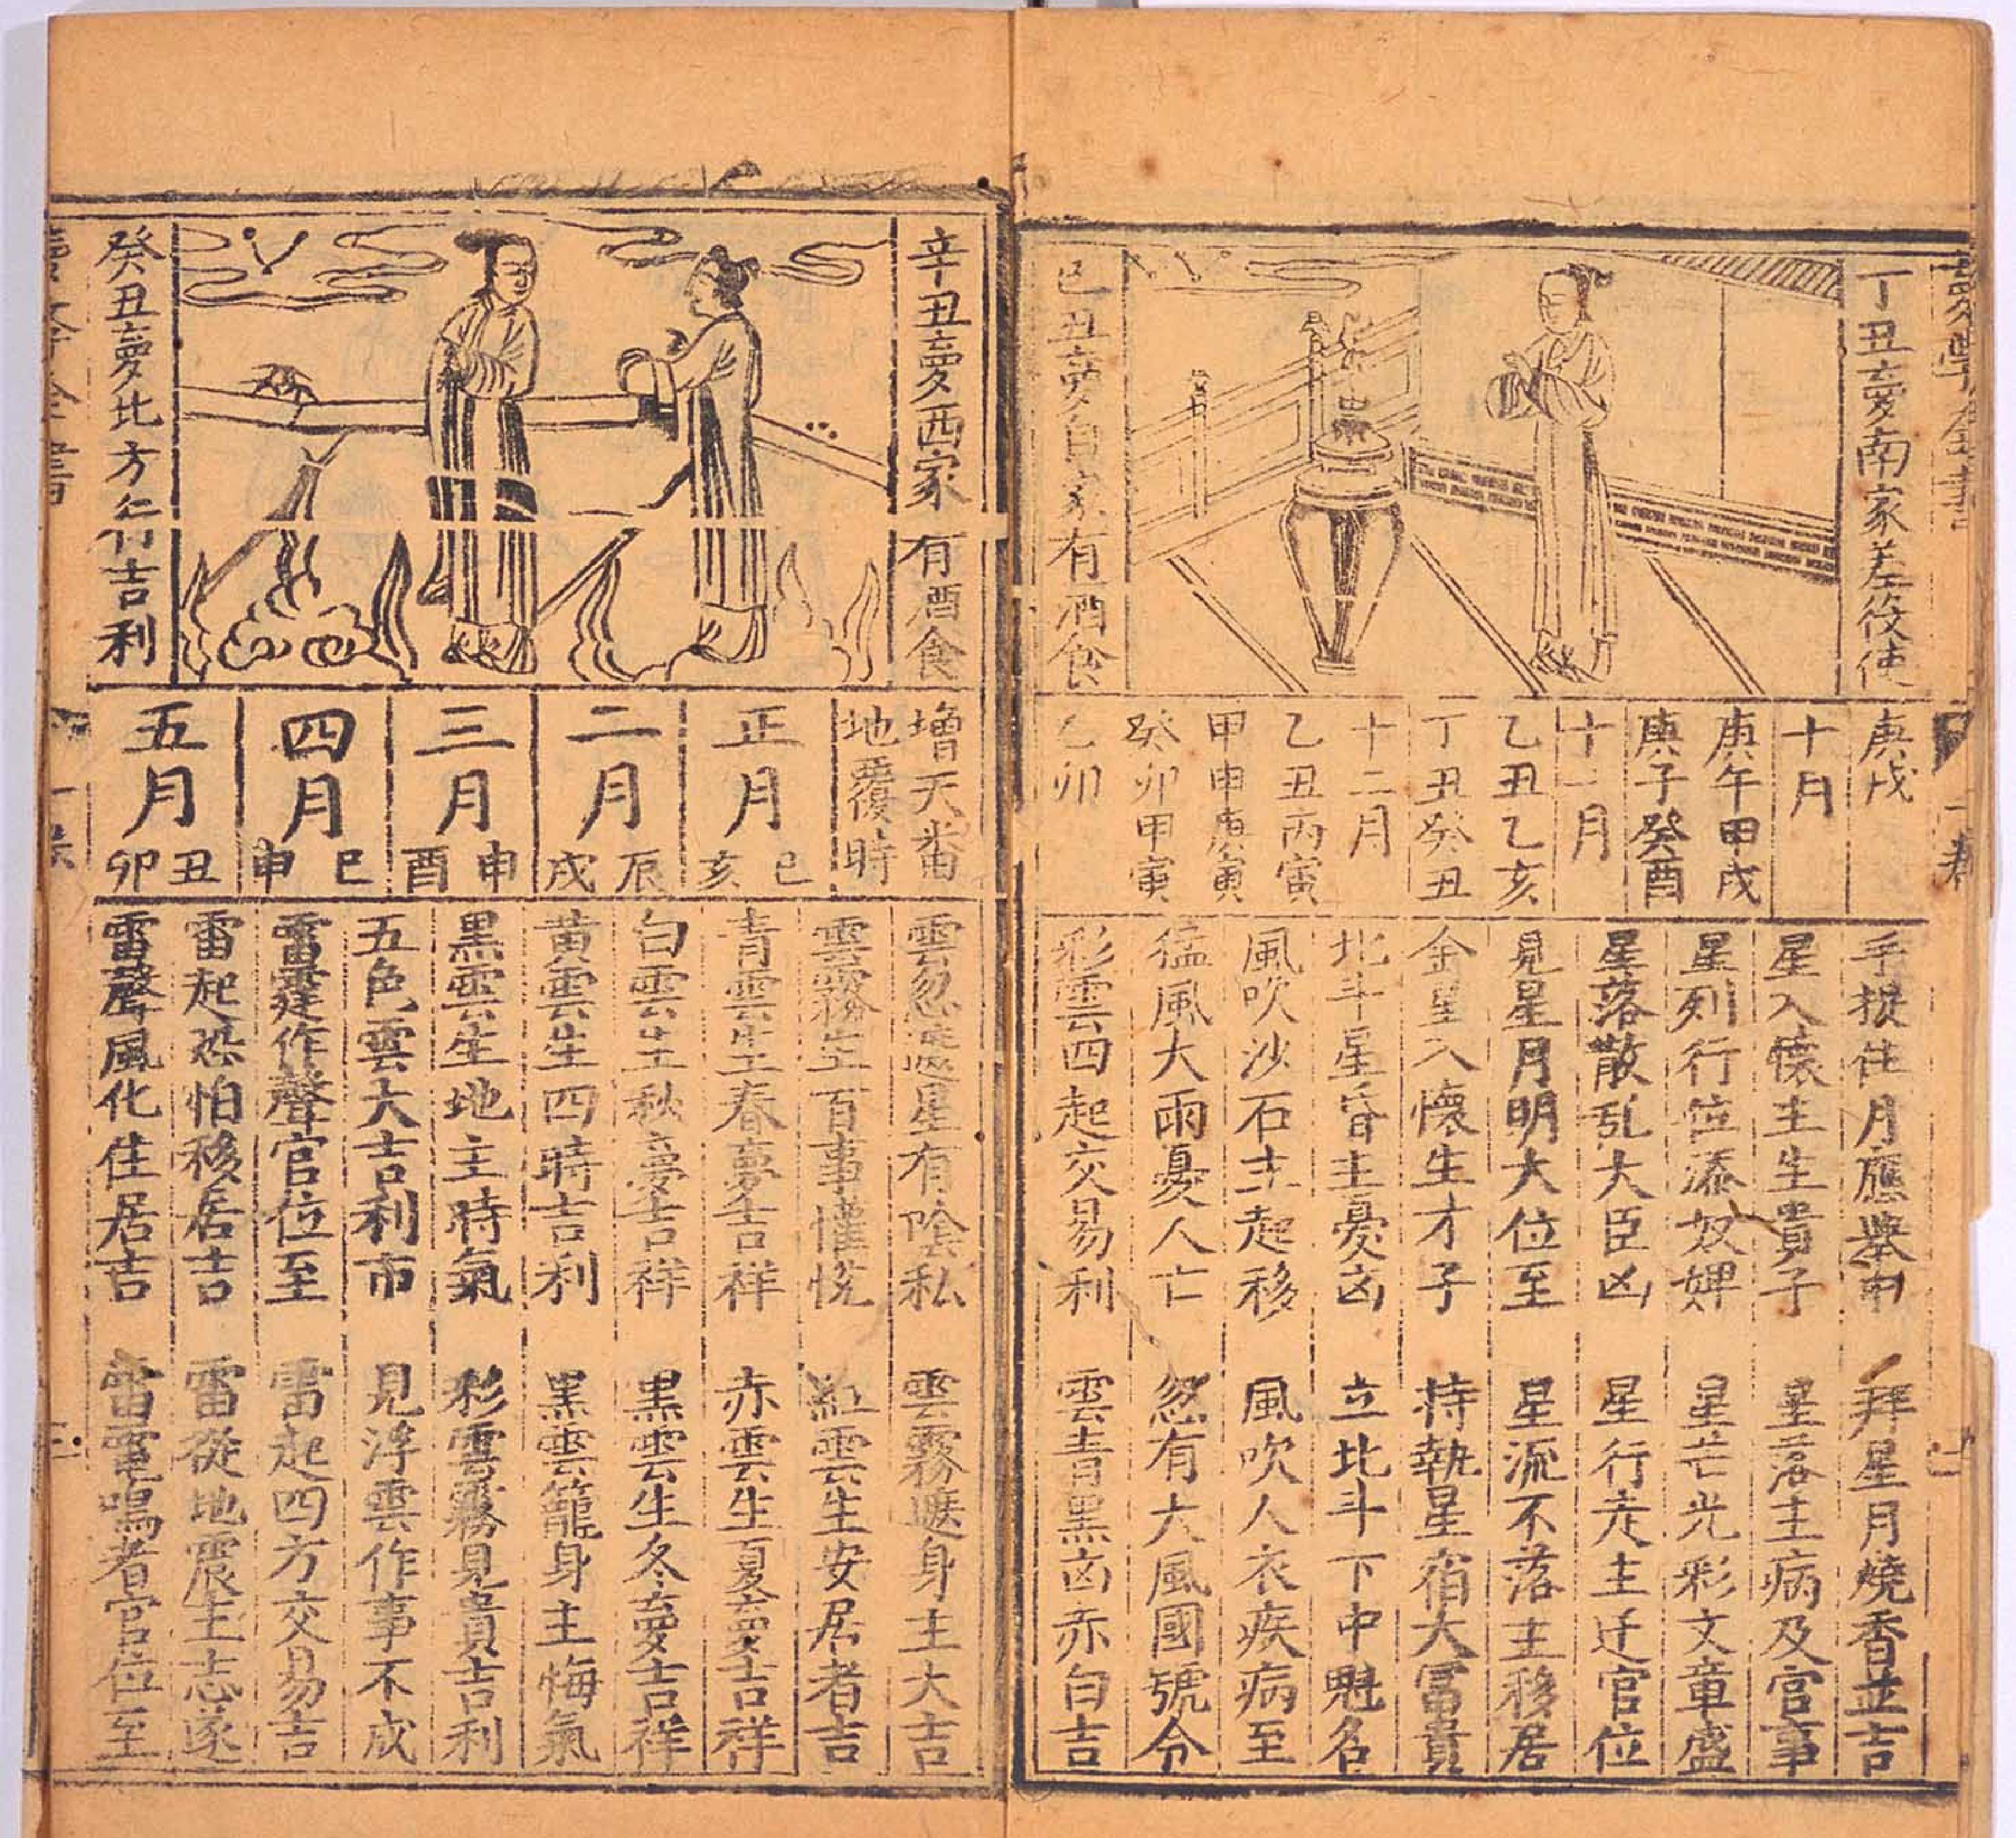 丁丑夢南家差役使
己丑夢自家有酒食
庚戌
十月
庚午甲戌
庚子癸酉
十一月
乙丑乙亥
丁丑癸丑
十二月
乙丑丙寅
甲申庚寅
癸卯甲寅
乙卯
手捉住月應舉中
拜星月燒香並吉
星入懷主生貴子
星落主病及官事
星列行位添奴婢
星芒光彩文章盛
星落散乱大臣凶
星行走主迁官位
見星月明大位至
星流不落主移居
金星入懷生才子
持執星宿大冨貴
北斗星昏主憂凶
立北斗下中魁名
風吹沙石主起移
風吹人衣疾病至
猛風大雨憂人亡
忽有大風國號令
彩雲四起交易利
雲青黑凶赤白吉
辛丑夢西家有酒食
癸丑夢比方 吉利
增天番
地覆時
正月
巳亥
二月
辰戌
三月
申酉
四月
巳申
五月
丑卯
雲忽遮星有陰私
雲霧遮身主大吉
雲霧生百事懽悅
紅雲生安居者吉
青雲生春夢吉祥
赤雲生夏夢吉祥
白雲生秋夢吉祥
黑雲生冬夢吉祥
黄雲生四時吉利
黑雲籠身主悔氣
黑雲生地主時氣
彩雲霧見貴吉利
五色雲大吉利市
見浮雲作事不成
雷霆作聲官位至
雷起四方交易吉
雷起恐怕移居吉
雷從地震主志遂
雷聲風化住居吉
雷電鳴者官位至